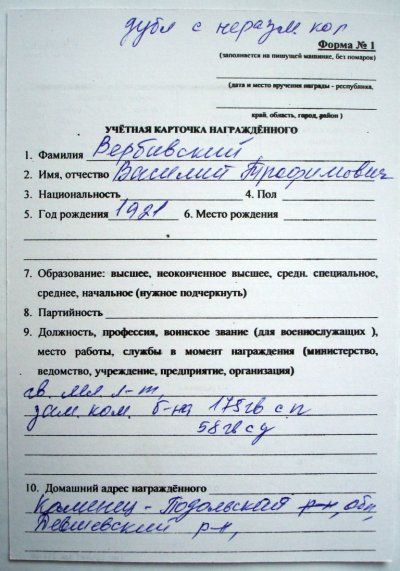 дубл с неразм кол
Форма № 1
(заполняется на пишущей машинке, без помарок)
(дата и место вручения награды - республика,
край, область, город, район )
УЧЁТНАЯ КАРТОЧКА НАГРАЖДЁННОГО
1. Фамилия Вербивский
2. Имя, отчество Василий Трофимович
3. Национальность 4. Пол
5. Год рождения 1921 6. Место рождения
7. Образование: высшее, неоконченное высшее, средн. специальное,
среднее, начальное (нужное подчеркнуть)
8. Партийность
9. Должность, профессия, воинское звание (для военнослужащих ),
место работы, службы в момент награждения (министерство,
ведомство, учреждение, предприятие, организация)
гв. мл л-т
зам. ком. б-на 175гв сп
58гв сд
10. Домашний адрес награждённого
Каменец-Подольский р-н, обл,
р-н,